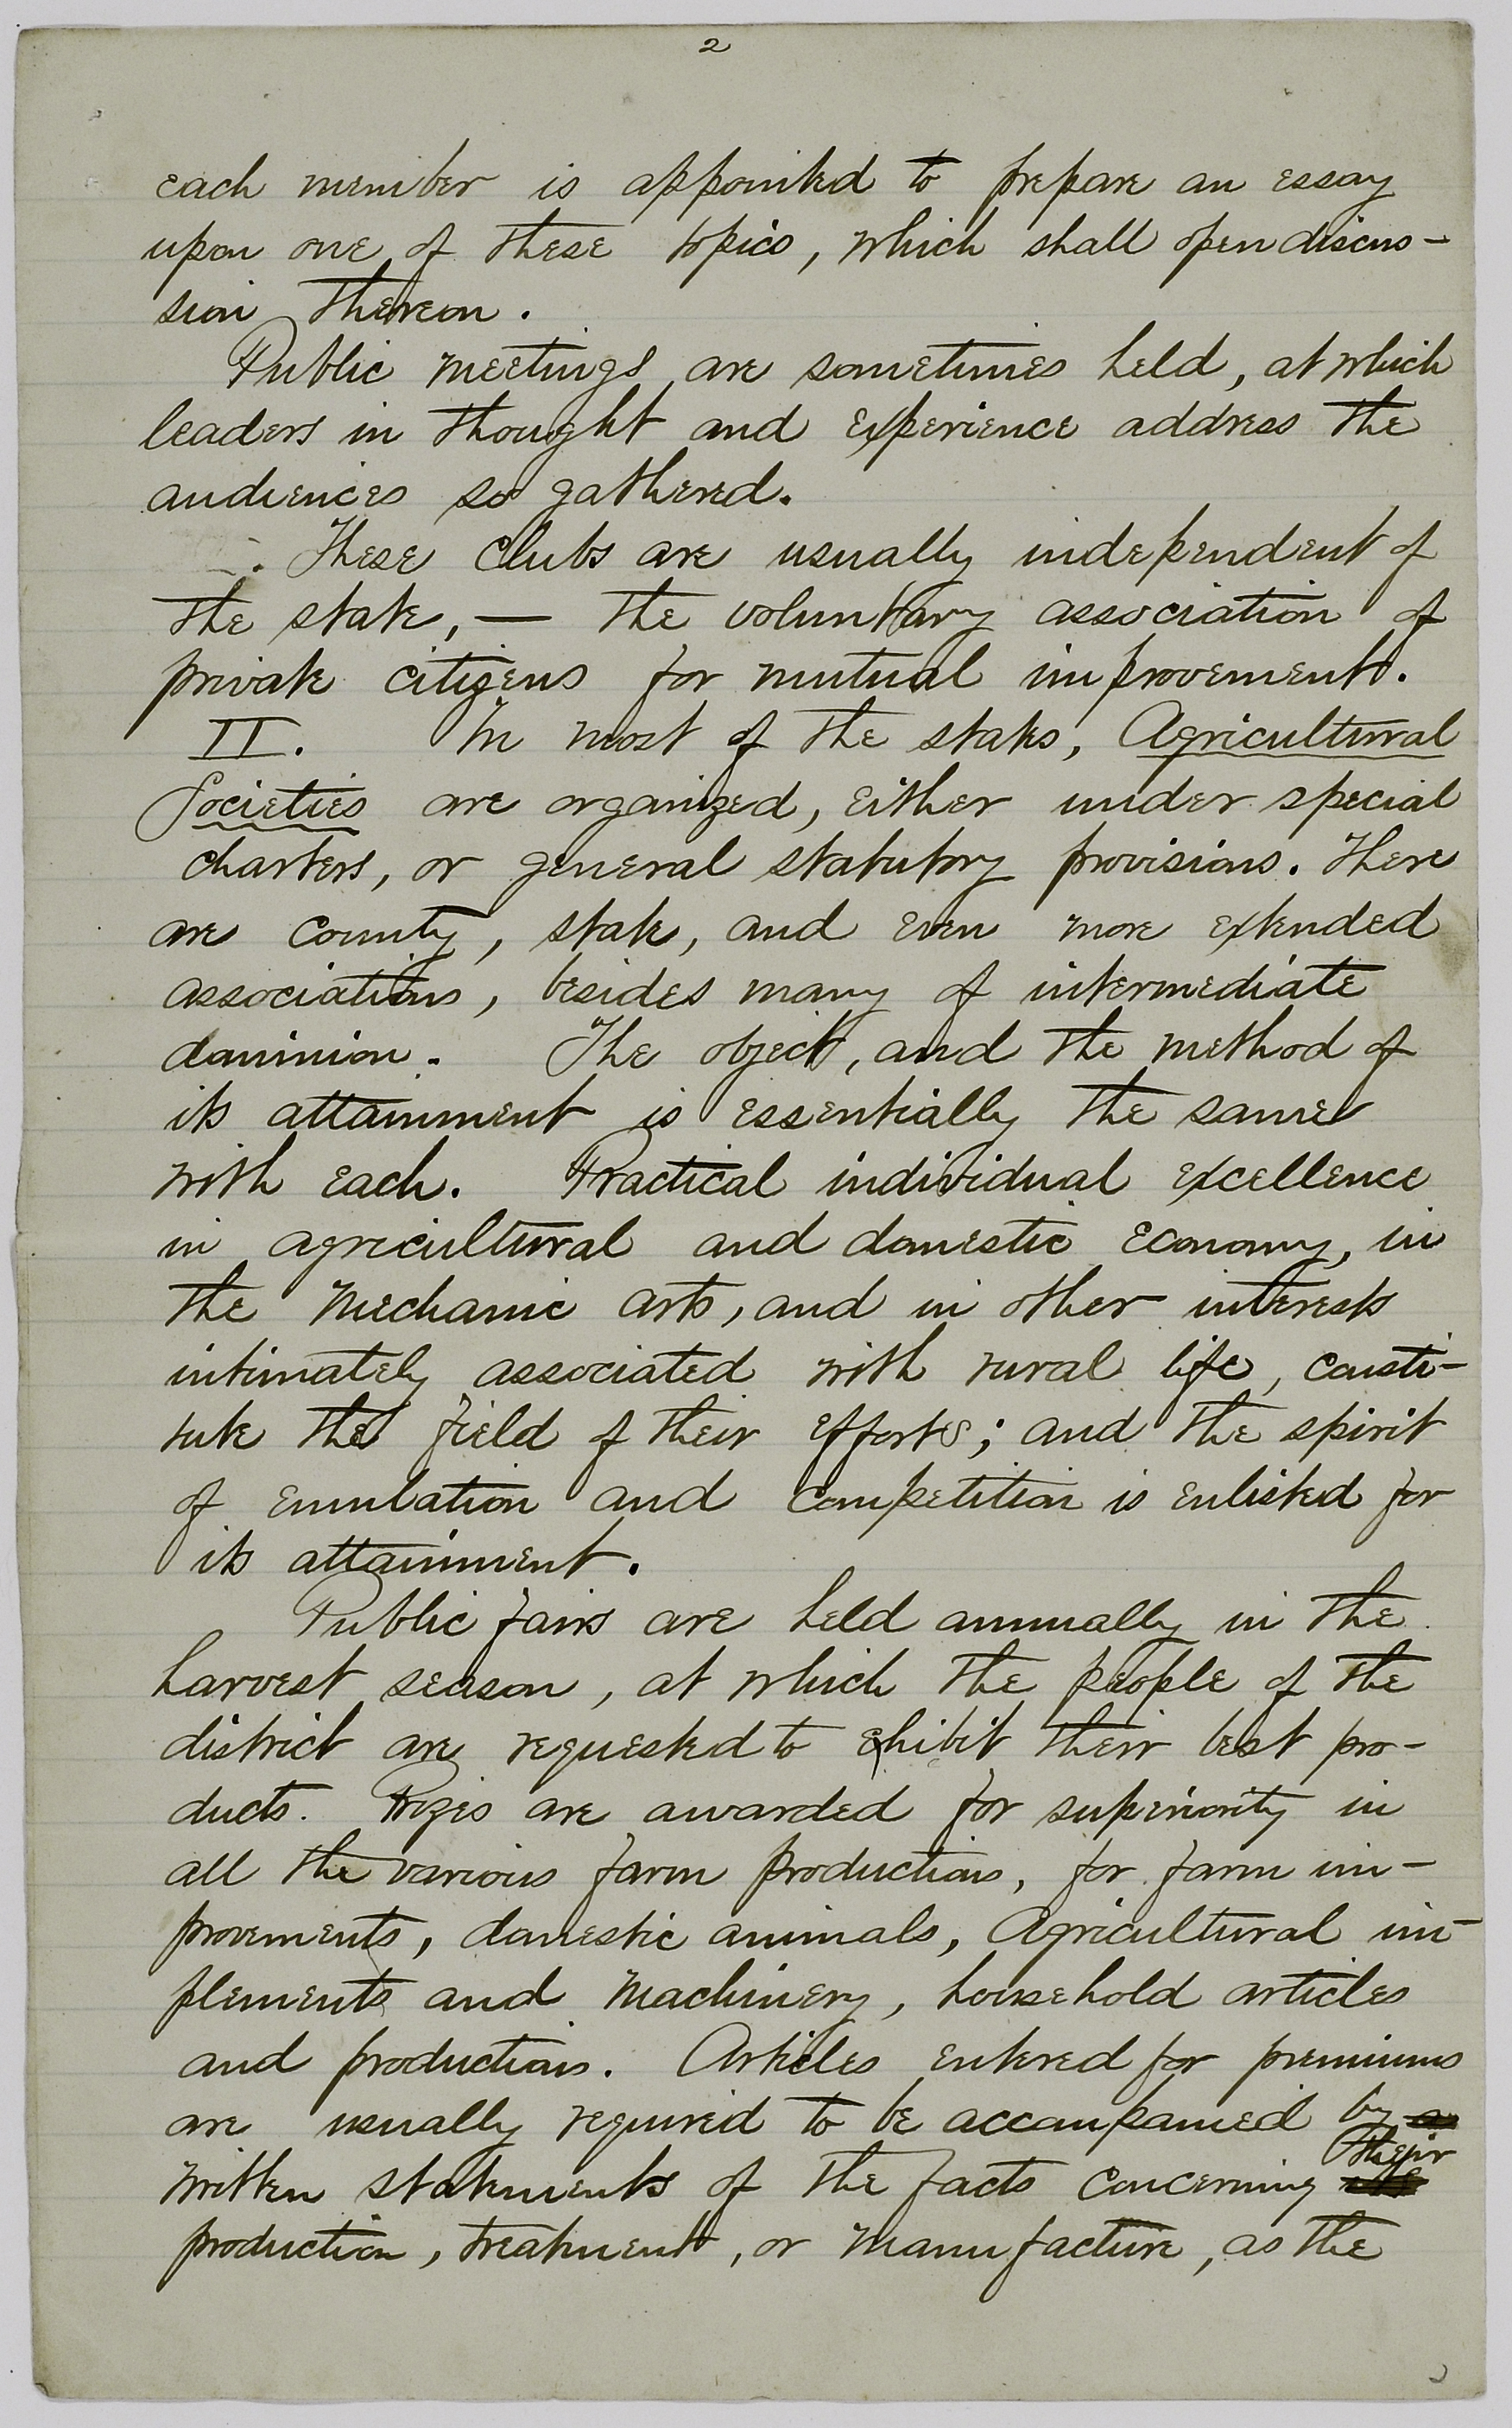 2
each member is appointed to prepare an essay
upon one of these topics, which shall open discus-
sion thereon.
Public meetings are sometimes held, at which
leaders in thought and experience address the
audiences so gathered.
These clubs are usually independent of
the state, — the voluntary association of
private citizens for mutual improvement.
II. In most of the states, Agricultural
Societies are organized, either under special
charters, or general statutory provisions. There
are county, state, and even more extended
associations, besides many of intermediate
dominion. The object, and the method of
its attainment is essentially the same
with each. Practical individual excellence
in agricultural and domestic economy, in
the mechanic arts, and in other interests
intimately associated with rural life, consti-
tute the field of their efforts; and the spirit
of emulation and competition is enlisted for
its attainment.
Public fairs are held annually in the
harvest season, at which the people of the
district are requested to exhibit their best pro-
ducts. Prizes are awarded for superiority in
all the various farm productions, for farm im-
provements, domestic animals, Agricultural im-
plements and machinery, household articles
and productions. Articles entered for premiums
are usually required to be accompanied by a
written statements of the facts concerning their
production, treatment, or manufacture, as the